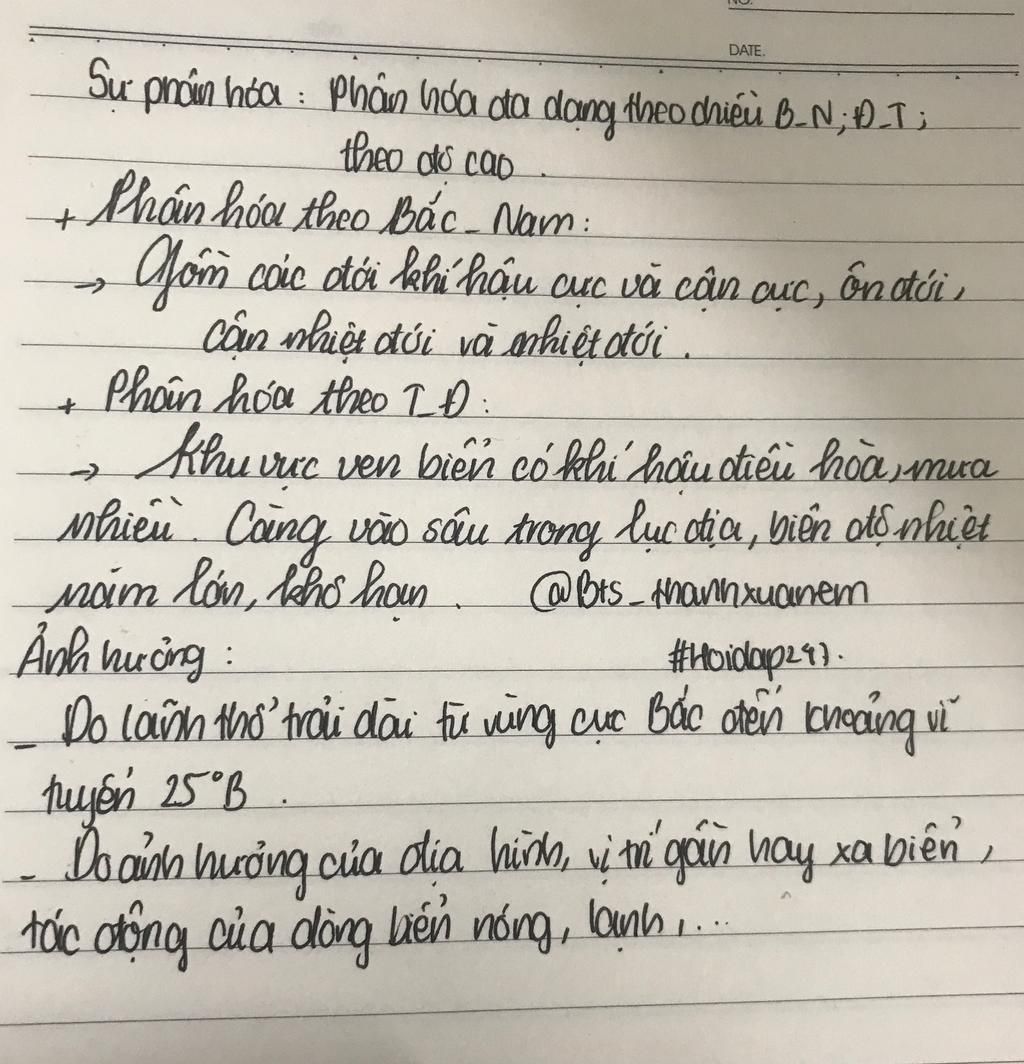 NO.
DATE.
Sự phân hóa : Phân hóa đa dạng theo chiều B_N; Đ_T;
theo độ cao .
+ Phân hóa theo Bắc_Nam:
→ Gồm các đới khí hậu cực và cận cực, ôn đới,
cận nhiệt đới và nhiệt đới .
+ Phân hóa theo T_Đ :
→ Khu vực ven biển có khí hậu điều hòa, mưa
nhiều. Càng vào sâu trong lục địa, biên độ nhiệt
năm lớn, khô hạn . @Bts_thanhxuanem
Ảnh hưởng : #Hoidap247.
_ Do lãnh thổ trải dài từ vùng cực Bắc đến khoảng vĩ
tuyến 25°B .
_ Do ảnh hưởng của địa hình, vị trí gần hay xa biển ,
tác động của dòng biển nóng, lạnh, ...